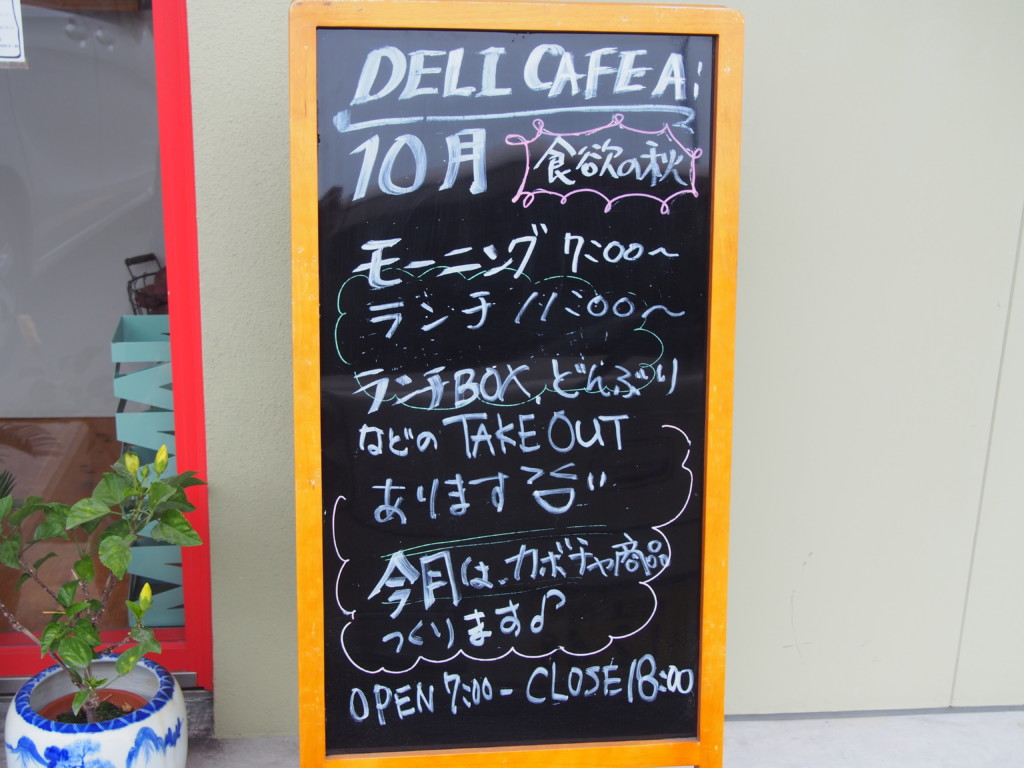 DELI CAFE A:
10月 食欲の秋
モーニング 7:00〜
ランチ 11:00〜
ランチBOX、どんぶり
などの TAKE OUT
あります
今月は、カボチャ商品
つくります♪
OPEN 7:00 - CLOSE 18:00